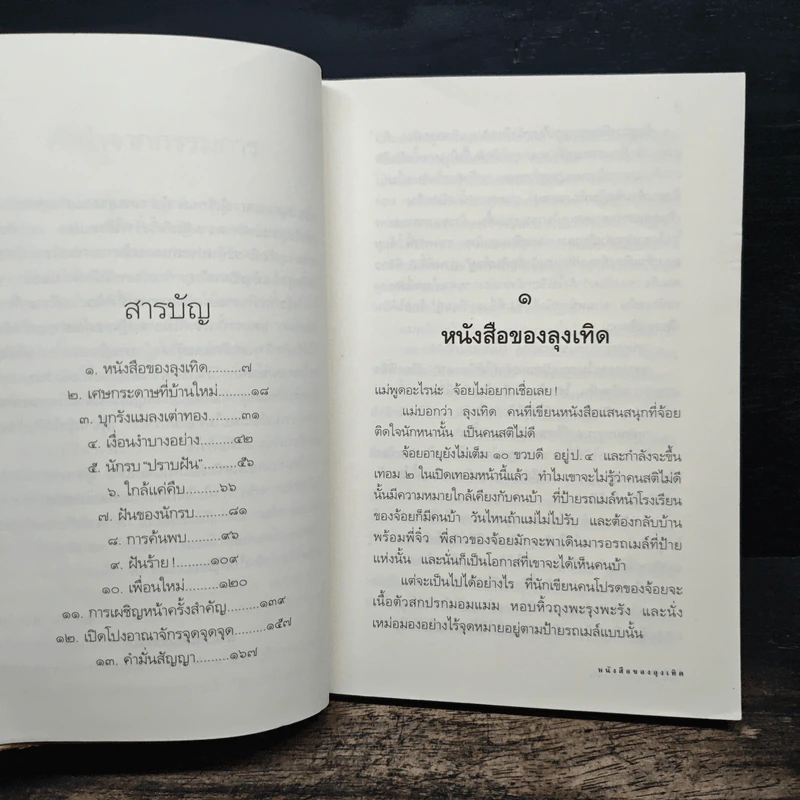 สารบัญ
๑. หนังสือของลุงเทิด........๗
๒. เศษกระดาษที่บ้านใหม่........๑๘
๓. บุกรังแมลงเต่าทอง........๓๑
๔. เงื่อนงำบางอย่าง........๔๒
๕. นักรบ “ปราบฝัน”........๕๖
๖. ใกล้แค่คืบ........๖๖
๗. ฝันของนักรบ........๘๑
๘. การค้นพบ........๙๖
๙. ฝันร้าย !........๑๐๙
๑๐. เพื่อนใหม่........๑๒๐
๑๑. การเผชิญหน้าครั้งสำคัญ........๑๓๙
๑๒. เปิดโปงอาณาจักรจุดจุดจุด........๑๕๗
๑๓. คำมั่นสัญญา.........๑๖๗
๑
หนังสือของลุงเทิด
แม่พูดอะไรน่ะ จ้อยไม่อยากเชื่อเลย !
แม่บอกว่า ลุงเทิด คนที่เขียนหนังสือแสนสนุกที่จ้อย
ติดใจนักหนานั้น เป็นคนสติไม่ดี
จ้อยอายุยังไม่เต็ม ๑๐ ขวบดี อยู่ป. ๔ และกำลังจะขึ้น
เทอม ๒ ในเปิดเทอมหน้านี้แล้ว ทำไมเขาจะไม่รู้ว่าคนสติไม่ดี
นั้นมีความหมายใกล้เคียงกับคนบ้า ที่ป้ายรถเมล์หน้าโรงเรียน
ของจ้อยก็มีคนบ้า วันไหนถ้าแม่ไม่ไปรับ และต้องกลับบ้าน
พร้อมพี่จิ๋ว พี่สาวของจ้อยมักจะพาเดินมารอรถเมล์ที่ป้าย
แห่งนั้น และนั่นก็เป็นโอกาสที่เขาจะได้เห็นคนบ้า
แต่จะเป็นไปได้อย่างไร ที่นักเขียนคนโปรดของจ้อยจะ
เนื้อตัวสกปรกมอมแมม หอบหิ้วถุงพะรุงพะรัง และนั่ง
เหม่อมองอย่างไร้จุดหมายอยู่ตามป้ายรถเมล์แบบนั้น
หนังสือของลุงเทิด